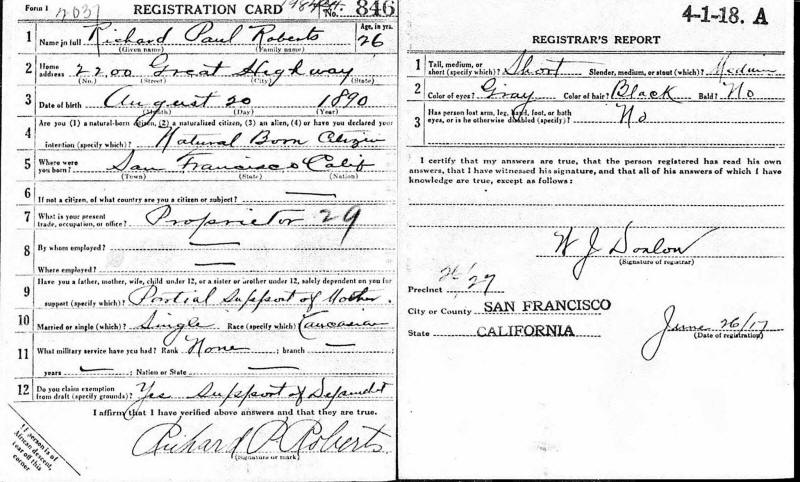 Form 1 REGISTRATION CARD No. 846
1 Name in full Richard Paul Roberts Age, in yrs. 26
(Given name) (Family name)
2 Home address 2200 Great Highway
(No.) (Street) (City) (State)
3 Date of birth August 20 1890
(Month) (Day) (Year)
4 Are you (1) a natural-born citizen, (2) a naturalized citizen, (3) an alien, (4) or have you declared your
intention (specify which)? Natural Born Citizen
5 Where were you born? San Francisco Calif
(Town) (State) (Nation)
6 If not a citizen, of what country are you a citizen or subject? —
7 What is your present trade, occupation, or office? Proprietor 29
8 By whom employed? —
Where employed? —
9 Have you a father, mother, wife, child under 12, or a sister or brother under 12, solely dependent on you for
support (specify which)? Partial Support of Mother
10 Married or single (which)? Single Race (specify which)? Caucasian
11 What military service have you had? Rank None ; branch — ;
years — ; Nation or State —
12 Do you claim exemption from draft (specify grounds)? Yes Support of Dependet
I affirm that I have verified above answers and that they are true.
Richard P. Roberts
(Signature or mark)
If person is of
African descent,
tear off this
corner
4-1-18. A
REGISTRAR'S REPORT
1 Tall, medium, or short (specify which)? Short Slender, medium, or stout (which)? Medium
2 Color of eyes? Gray Color of hair? Black Bald? No
3 Has person lost arm, leg, hand, foot, or both
eyes, or is he otherwise disabled (specify)? No
I certify that my answers are true, that the person registered has read his own
answers, that I have witnessed his signature, and that all of his answers of which I have
knowledge are true, except as follows:
W J Donlow
(Signature of registrar)
Precinct 26/27
City or County SAN FRANCISCO
State CALIFORNIA
June 26/17
(Date of registration)